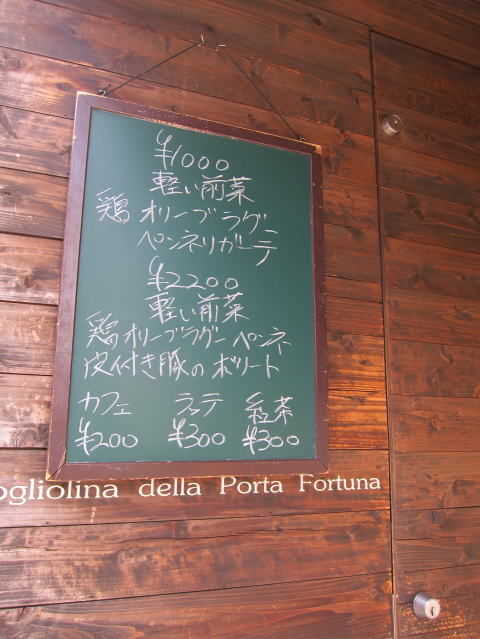 ¥1000
軽い前菜
鶏 オリーブ ラグー
ペンネリガーテ
¥2200
軽い前菜
鶏オリーブラグー ペンネ
皮付き豚の ボリート
カフェ ラッテ 紅茶
¥200 ¥300 ¥300
ogliolina della Porta Fortuna